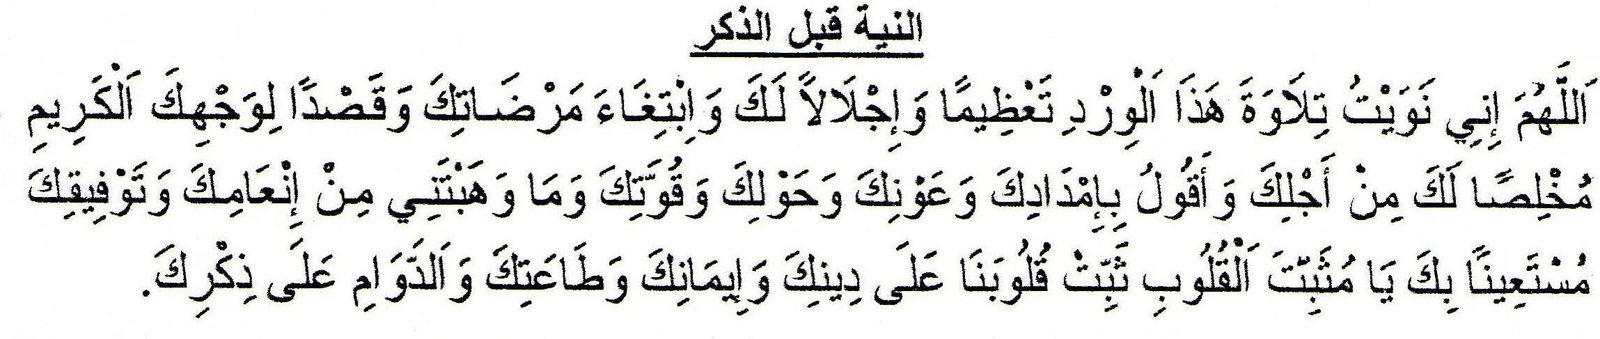 النية قبل الذكر
اَللَّهُمَ إِنِي نَوَيْتُ تِلَاوَةَ هَذَا اَلْوِرْدِ تَعْظِيمًا وَإِجْلَالاً لَكَ وَاِبْتِغَاءَ مَرْضَاتِكَ وَقَصْدًا لِوَجْهِكَ اَلْكَرِيمِ
مُخْلِصًا لَكَ مِنْ أَجْلِكَ وَأَقُولُ بِإِمْدَادِكَ وَعَوْنِكَ وَحَوْلِكَ وَقُوَّتِكَ وَمَا وَهَبْتَنِي مِنْ إِنْعَامِكَ وَتَوْفِيقِكَ
مُسْتَعِينًا بِكَ يَا مُثَبِّتَ اَلْقُلُوبِ ثَبِّتْ قُلُوبَنَا عَلَى دِينِكَ وَإِيمَانِكَ وَطَاعَتِكَ وَاَلدَّوَامِ عَلَى ذِكْرِكَ.